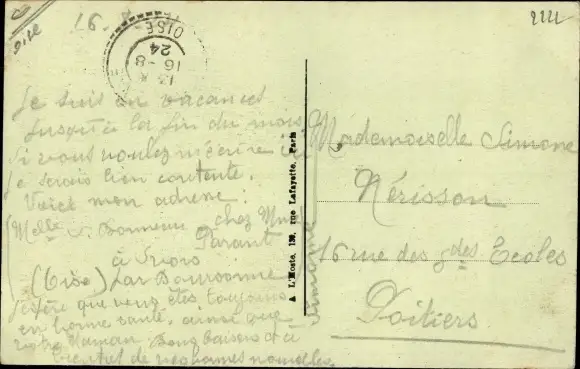 2222
Oise
OISE
16-8
24
Je suis en vacances
jusqu'à la fin du mois
si vous voulez m'écrire ici
je serais bien contente.
Voici mon adresse.
(Melle S. Bonneau chez Mme
Parant
à Ivors
(Oise) par Boursonne
J'espère que vous êtes toujours
en bonne santé, ainsi que
votre Maman Bons baisers et à
bientôt de vos bonnes nouvelles.
Simone
A L'Hoste, 139, rue Lafayette, Paris
Mademoiselle Simone
Nérisson
16 rue des gdes Ecoles
Poitiers